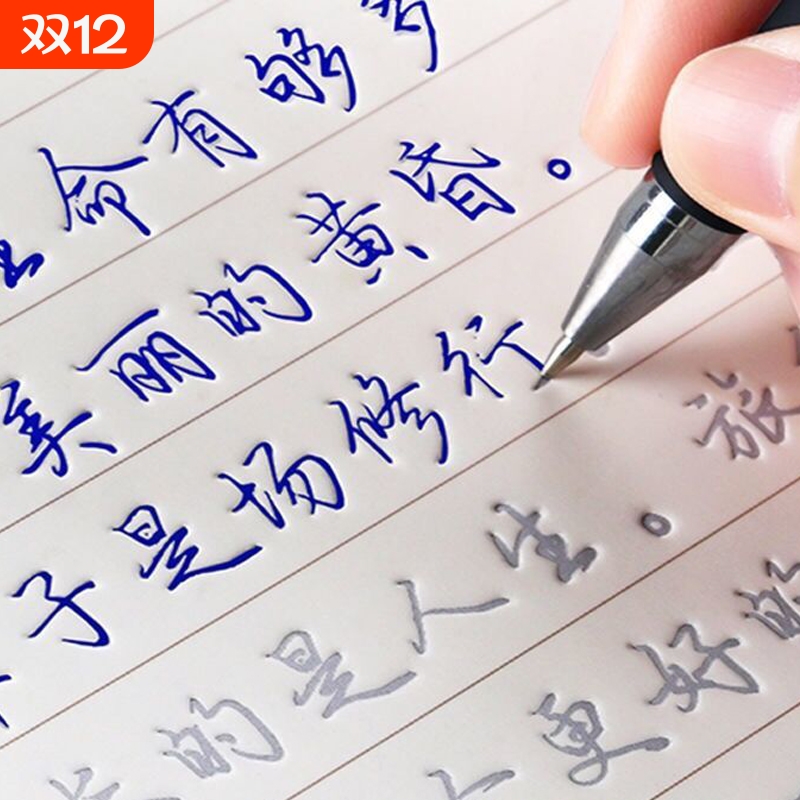 双12
命有够
美丽的黄昏。
子是场修行
的是人生。旅
更好的